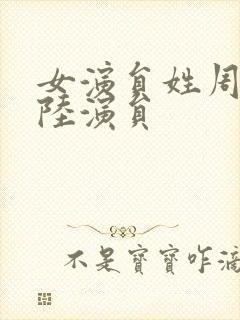 女演員姓周
陸演員
不是寶寶咋滴